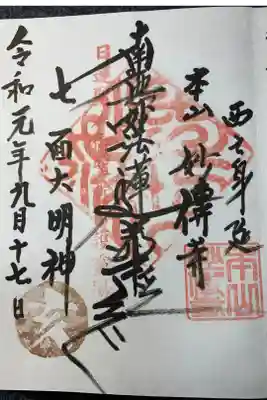 西之身延
本山 妙傳寺
南無妙法蓮華経
七面大明神
令和元年九月十七日